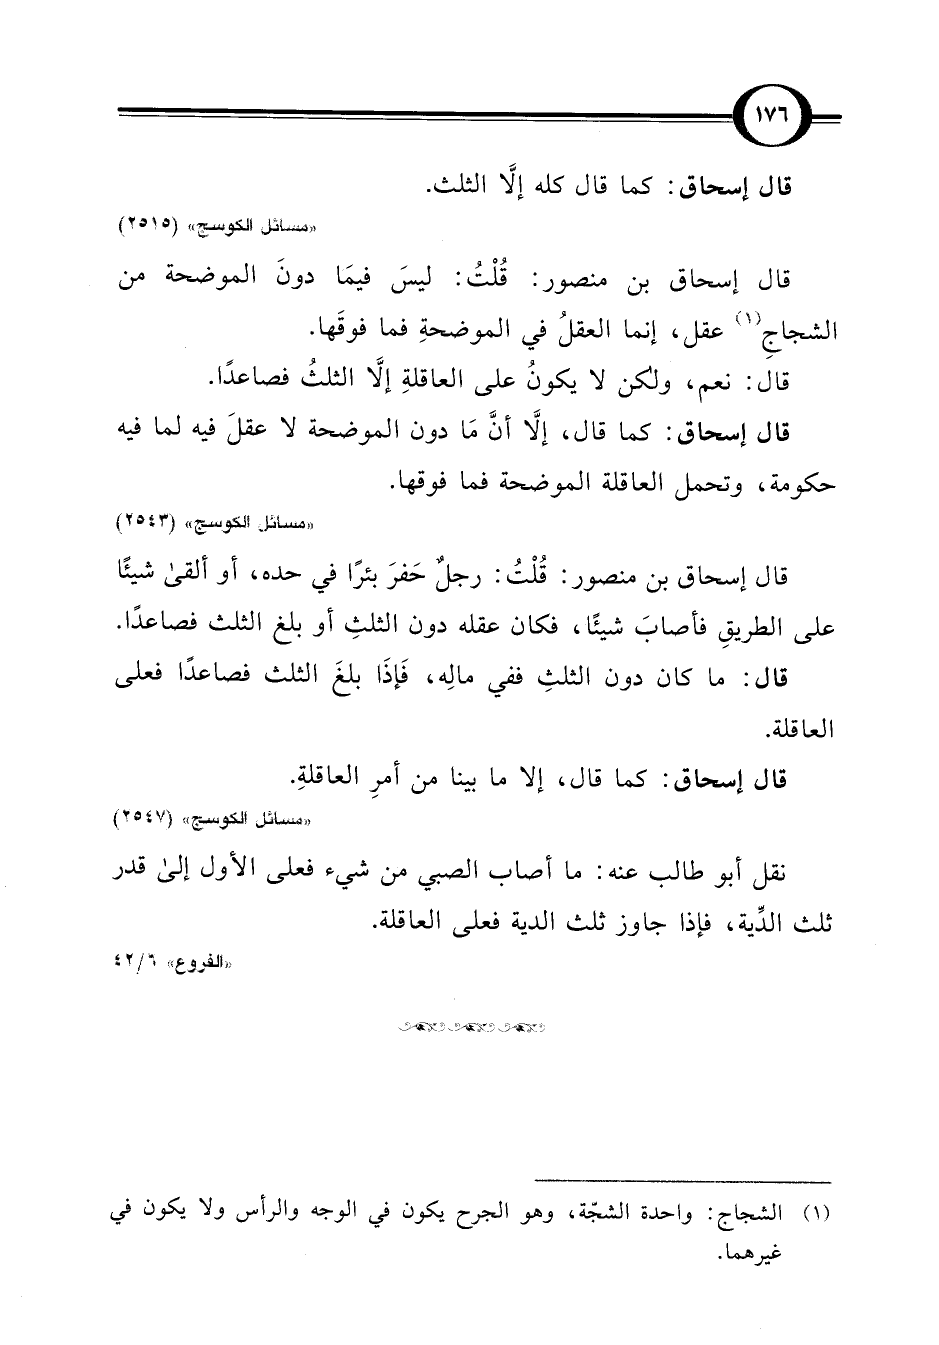 ١٧٦
قال إسحاق: كما قال كله إلَّا الثلث.
«مسائل الكوسج» (٢٥١٥)
قال إسحاق بن منصور: قُلْتُ: ليسَ فيمَا دونَ الموضحة من
الشجاجِ(١) عقل، إنما العقلُ في الموضحةِ فما فوقَها.
قال: نعم، ولكن لا يكونُ على العاقلةِ إلَّا الثلثُ فصاعدًا.
قال إسحاق: كما قال، إلَّا أنَّ مَا دون الموضحة لا عقلَ فيه لما فيه
حكومة، وتحمل العاقلة الموضحة فما فوقها.
«مسائل الكوسج» (٢٥٤٣)
قال إسحاق بن منصور: قُلْتُ: رجلٌ حَفرَ بئرًا في حده، أو ألقىٰ شيئًا
على الطريقِ فأصابَ شيئًا، فكان عقله دون الثلثِ أو بلغ الثلث فصاعدًا.
قال: ما كان دون الثلثِ ففي مالِه، فَإذَا بلغَ الثلث فصاعدًا فعلى
العاقلة.
قال إسحاق: كما قال، إلا ما بينا من أمرِ العاقلةِ.
«مسائل الكوسج» (٢٥٤٧)
نقل أبو طالب عنه: ما أصاب الصبي من شيء فعلى الأول إلىٰ قدر
ثلث الدِّية، فإذا جاوز ثلث الدية فعلى العاقلة.
«الفروع» ٤٢/٦
(١) الشجاج: واحدة الشجّة، وهو الجرح يكون في الوجه والرأس ولا يكون في
غيرهما.